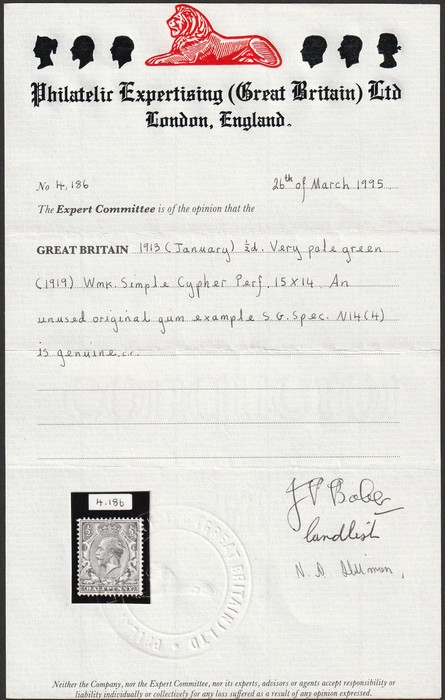 Philatelic Expertising (Great Britain) Ltd
London, England.
No 4,186 26th of March 1995
The Expert Committee is of the opinion that the
GREAT BRITAIN 1913 (January) ½d. Very pale green
(1919) Wmk. Simple Cypher Perf. 15X14. An
unused original gum example S.G. Spec. N14(4)
is genuine.
4.186
HALFPENNY
(GREAT BRITAIN) LTD
Neither the Company, nor the Expert Committee, nor its experts, advisors or agents accept responsibility or
liability individually or collectively for any loss suffered as a result of any opinion expressed.